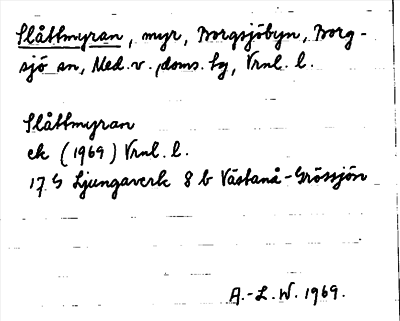 Slåttmyran, myr, Borgsjöbyn, Borg-
sjö sn, Med. v., doms. tg, Vrnl. l.
Slåttmyran
ek (1969) Vrnl. l.
17 G Ljungaverk 8 b Västanå-Grössjön
A.-L. W. 1969.